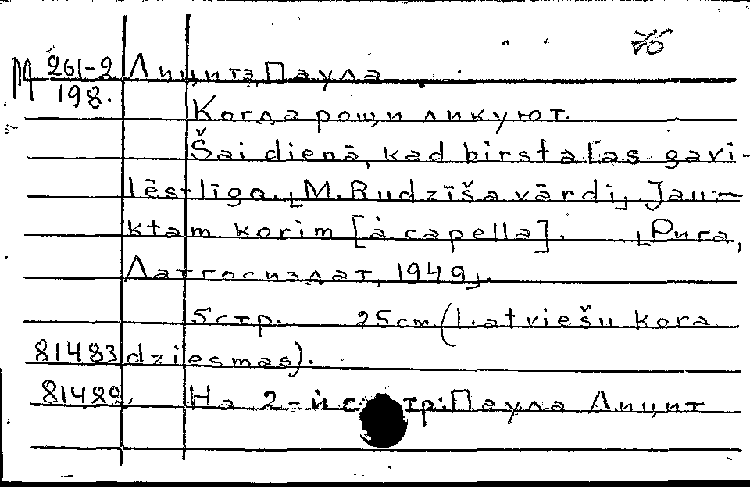 76
М 261-2 Лицитa, Паула
198.
Когда рощи ликуют.
Šai dienā, kad birstalas gavi-
lēs līgo. [M. Rudzīša vārdi], Jau-
ktam korim [à capella]. [Рига,
Латгосиздат, 1949].
5 стр. 25 cm (Latviešu kora
81483 dziesmas).
81489 На 2-й стр: Паула Лицит